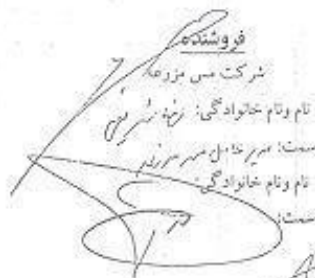 فروشنده
شرکت مس مزرعه
نام ونام خانوادگی:
سمت: مدیر عامل مس مزرعه
نام ونام خانوادگی:
سمت: